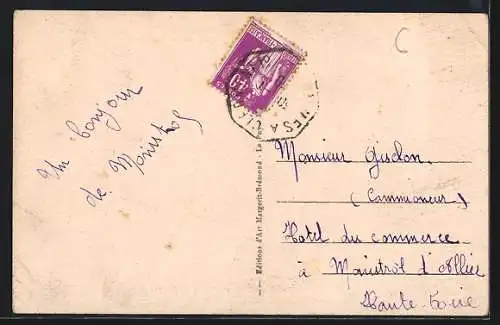 Un bonjour
de Monistrol
Monsieur
(Camionneur)
Hotel du commerce
à Monistrol d'Allier
Haute Loire
Editions d'Art Margerit-Brémond - Le Puy
C